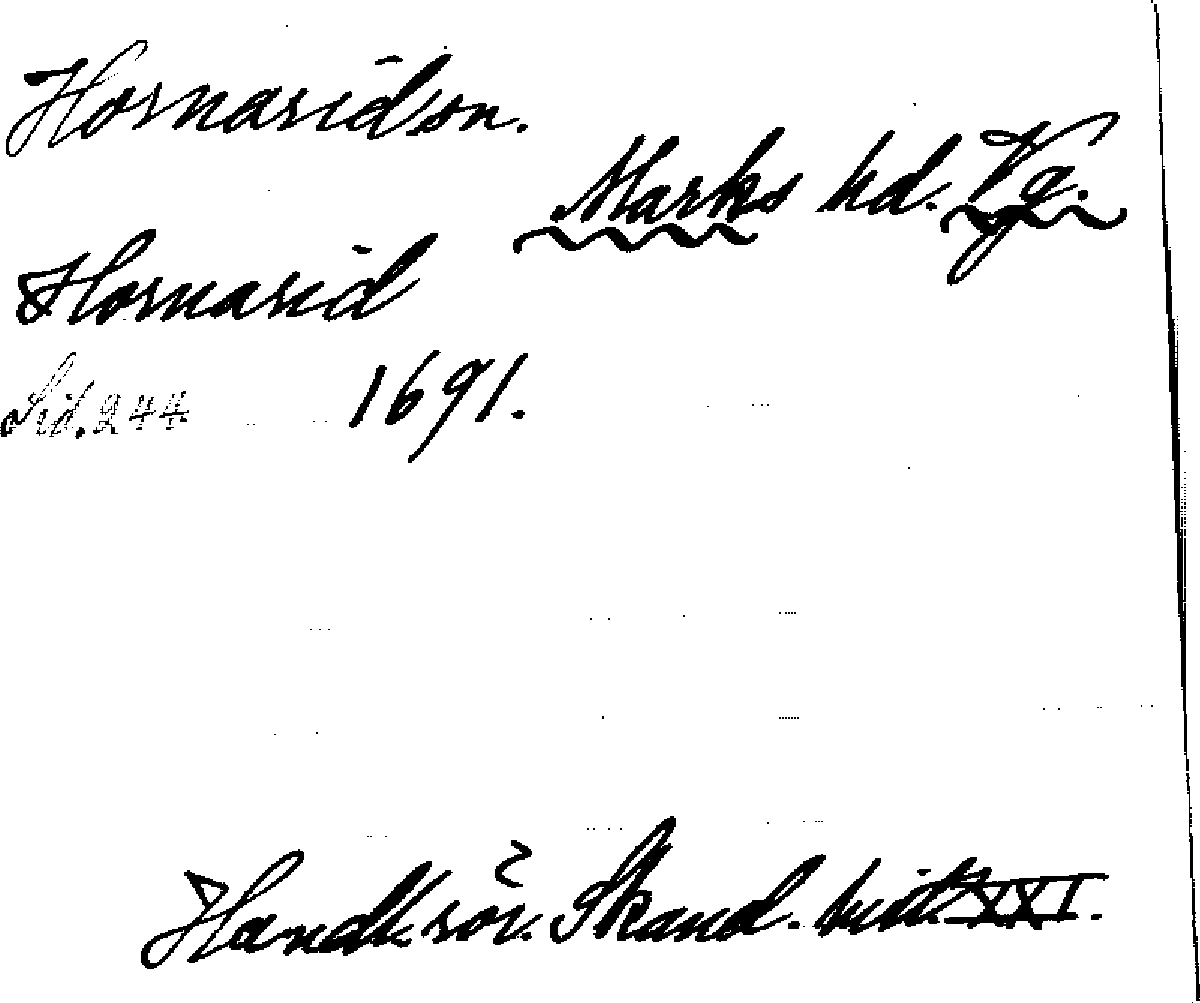 Hornasidsön.
Marks hd. Vg.
Hornasid
Sid. 244 1691.
Handl. rör. Skand. hist. XXI.